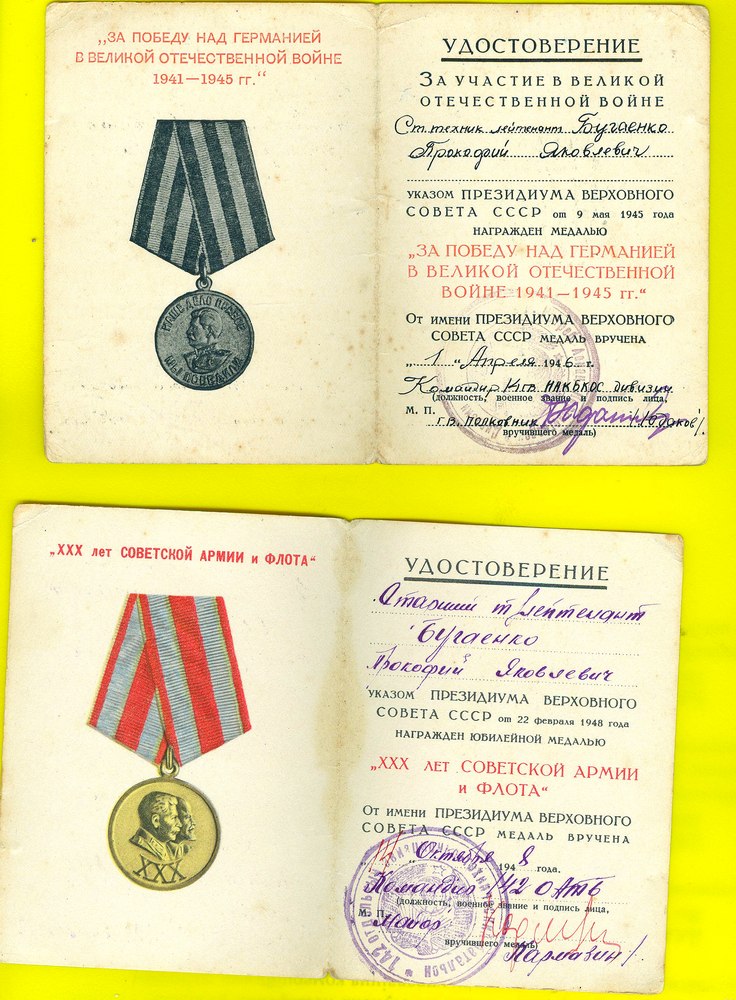 „ЗА ПОБЕДУ НАД ГЕРМАНИЕЙ
В ВЕЛИКОЙ ОТЕЧЕСТВЕННОЙ ВОЙНЕ
1941—1945 гг.“
НАШЕ ДЕЛО ПРАВОЕ
МЫ ПОБЕДИЛИ
УДОСТОВЕРЕНИЕ
ЗА УЧАСТИЕ В ВЕЛИКОЙ
ОТЕЧЕСТВЕННОЙ ВОЙНЕ
Ст. техник лейтенант Бугаенко
Прокофий Яковлевич
УКАЗОМ ПРЕЗИДИУМА ВЕРХОВНОГО
СОВЕТА СССР от 9 мая 1945 года
НАГРАЖДЕН МЕДАЛЬЮ
„ЗА ПОБЕДУ НАД ГЕРМАНИЕЙ
В ВЕЛИКОЙ ОТЕЧЕСТВЕННОЙ
ВОЙНЕ 1941—1945 гг.“
От имени ПРЕЗИДИУМА ВЕРХОВНОГО
СОВЕТА СССР МЕДАЛЬ ВРУЧЕНА
„1“ Апреля 1946 г.
Командир гв. дивизии
(должность, военное звание и подпись лица,
М. П.
гв. полковник
вручившего медаль)
„XXX лет СОВЕТСКОЙ АРМИИ и ФЛОТА“
XXX
УДОСТОВЕРЕНИЕ
Старший т/лейтенант
Бугаенко
Прокофий Яковлевич
УКАЗОМ ПРЕЗИДИУМА ВЕРХОВНОГО
СОВЕТА СССР от 22 февраля 1948 года
НАГРАЖДЕН ЮБИЛЕЙНОЙ МЕДАЛЬЮ
„XXX ЛЕТ СОВЕТСКОЙ АРМИИ
и ФЛОТА“
От имени ПРЕЗИДИУМА ВЕРХОВНОГО
СОВЕТА СССР МЕДАЛЬ ВРУЧЕНА
Октября 1948 года.
Командир 142 ОАТБ
(должность, военное звание и подпись лица,
М. П.
Майор
вручившего медаль)
/Кармазин/